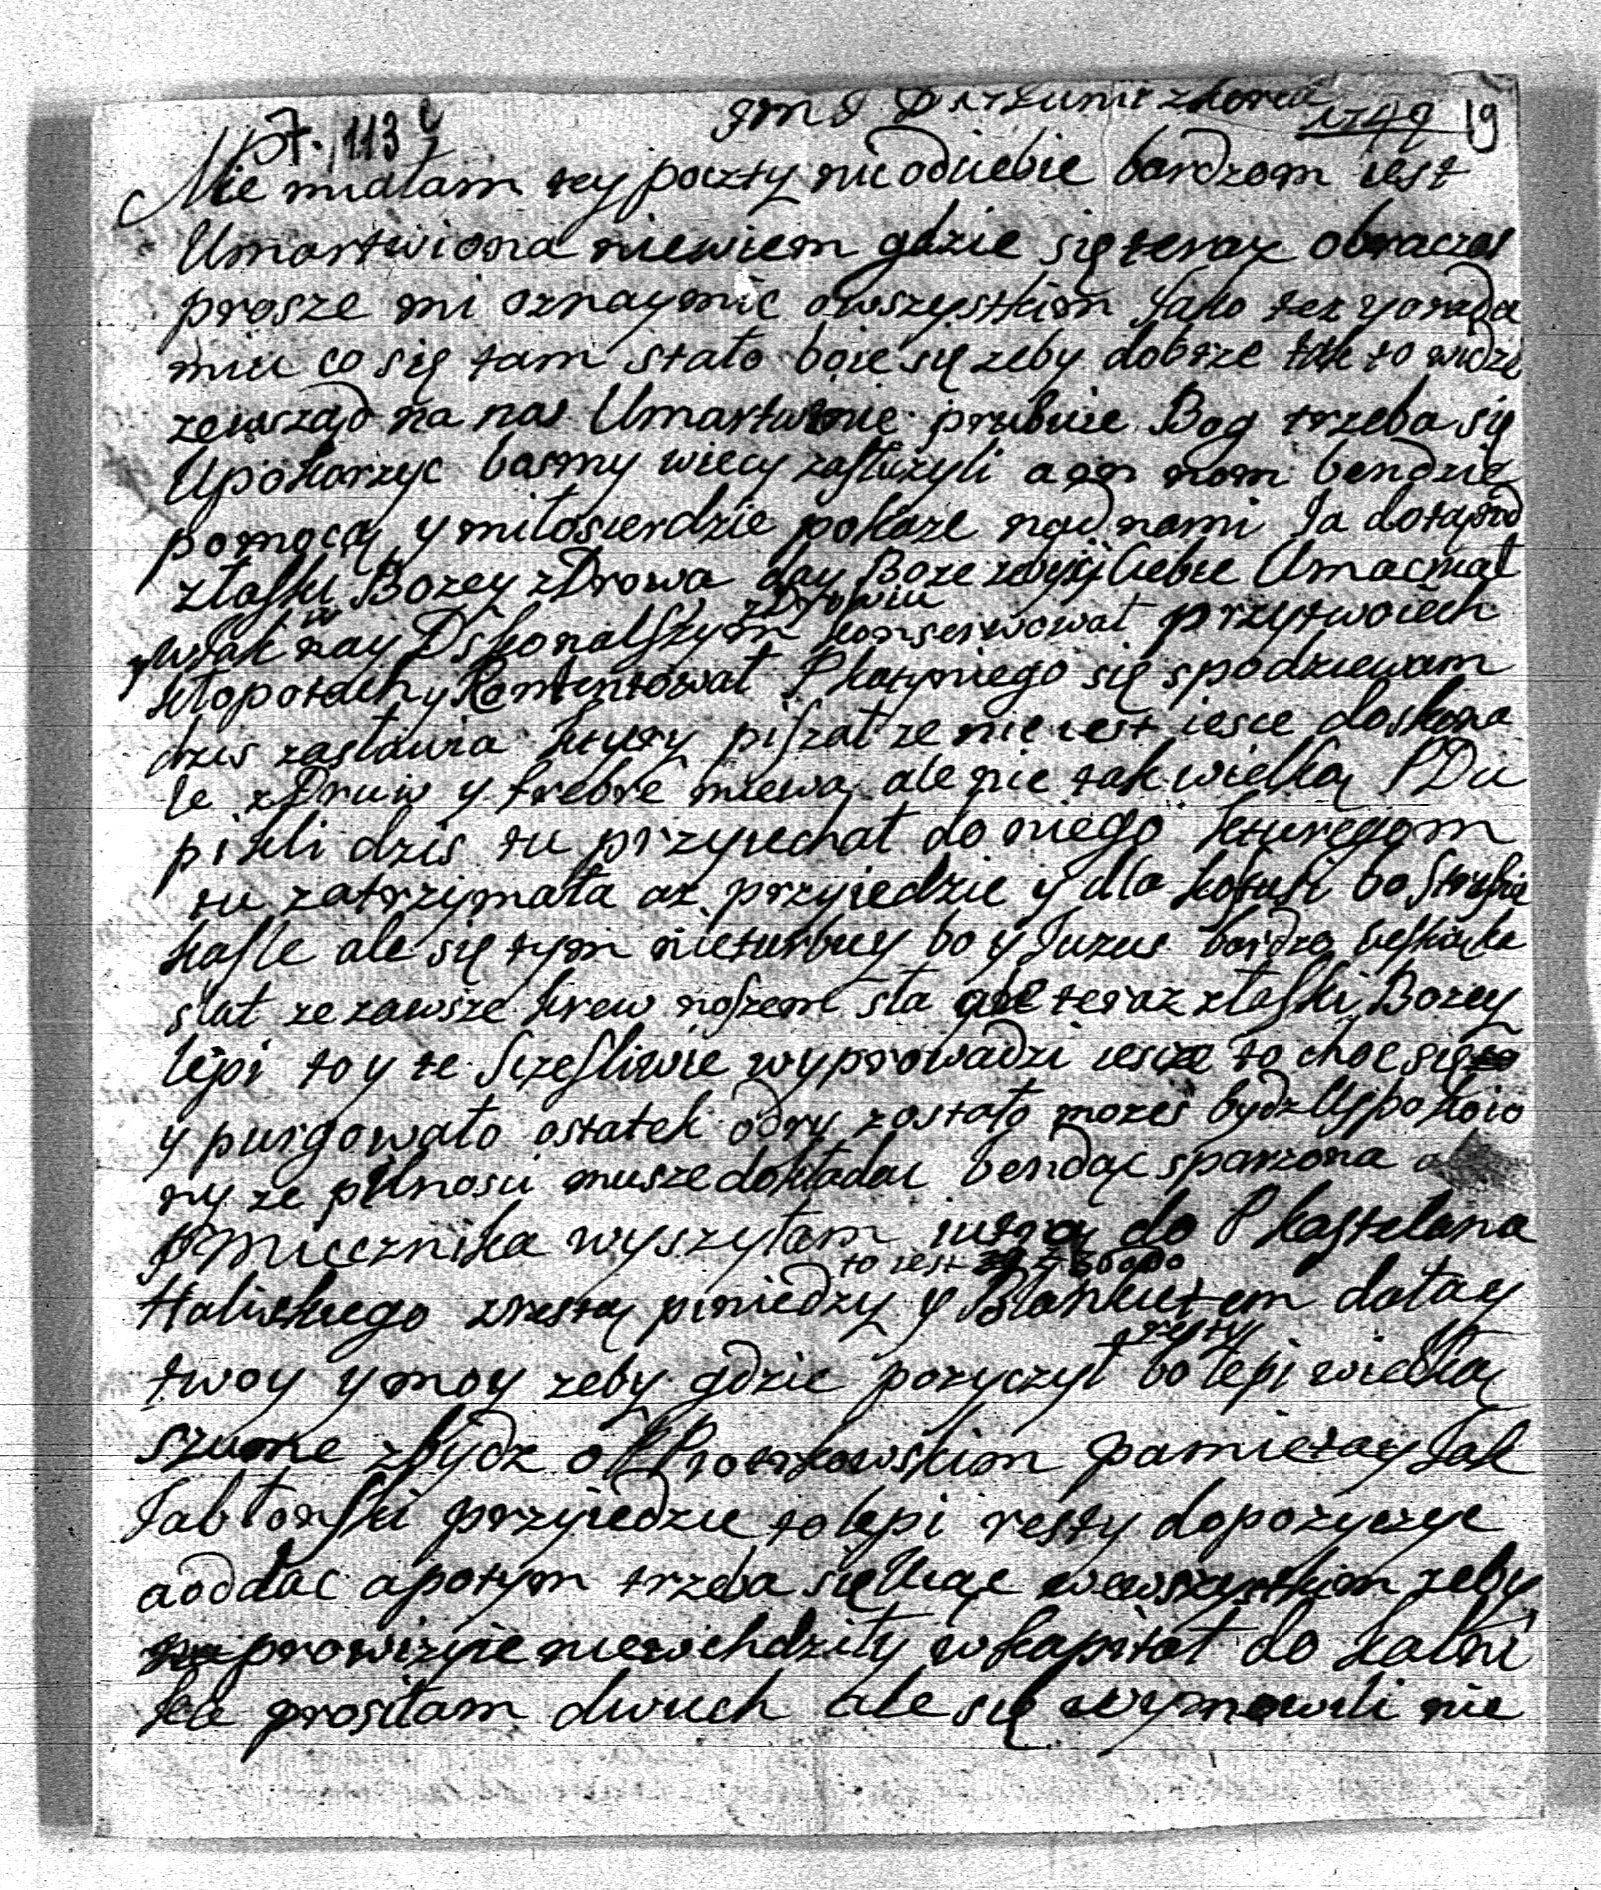 113
1749 19
Nie miałam tey poczty nic odciebie bardzom iest
Umartwiona niewiem gdzie się teraz obracasz
prosze mi oznaymic owszystkim Jako tez y
miu co się tam stało boie się zeby dobrze tak to widze
zewsząd na nas Umartwienie prubuie Bog trzeba się
Upokarzyc basmy wiecy zasłuzyli a on nom bendzie
pomocą y miłosierdzie pokaze nad nami Ja dotąd
złaski Bozey zDrowa day Boze zebyś Ciebie Umacniał
w zDrowiu
y wtak nay Dskonalszym konserwował przytwoich
kłopotach y Kontentował P się spodziewam
dzis zastawia ktury pisał ze nie iest iesce doskona
le zDruw y frebre miewa ale nie tak wielką P Du
pikli dzis tu przyiechał do niego kturegom
tu zatrzymała az przyiedzie y dla bo
kasle ale się tym nieturbuy bo y Juzus bardzo
słat ze zawsze krew nosem sła ale teraz złaski Bozey
lepi to y te Sczesliwie wyprowadzi iescze to choc się
y purgowało ostatek odry zostało mozes bydz Uspokoio
ny ze pilnosci musze dokładac bendąc sparzona
P Miecznika wyszyłam iutro do P Kasztelana
to iest
Halickiego zresztą piniedzy y Blankietem dałay
reszty
twoy y moy zeby gdzie pozyczył bo lepi wielką
szume zbydz o P Piotrkowskim pamietay Jak
Jabłonski przyiedzie to lepi reszty dopozyczyc
a oddac apotym trzeba się Uiąc wewszystkim zeby
prowizyie niewchdziły wkapitał do
prosiłam dwuch ale się wymowili nie